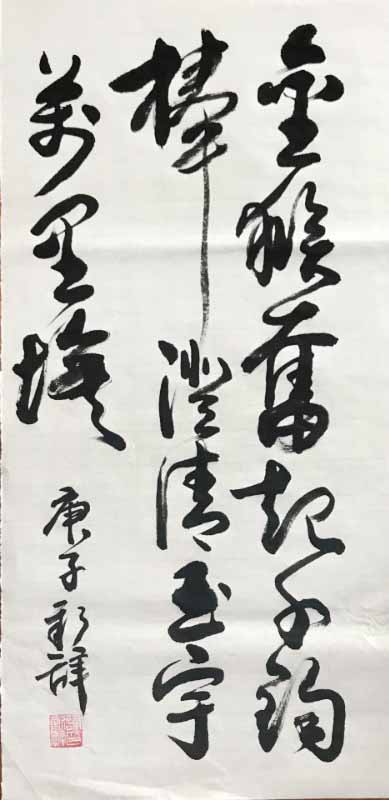 金猴奮起千鈞
棒澄清玉宇
萬里埃
庚子